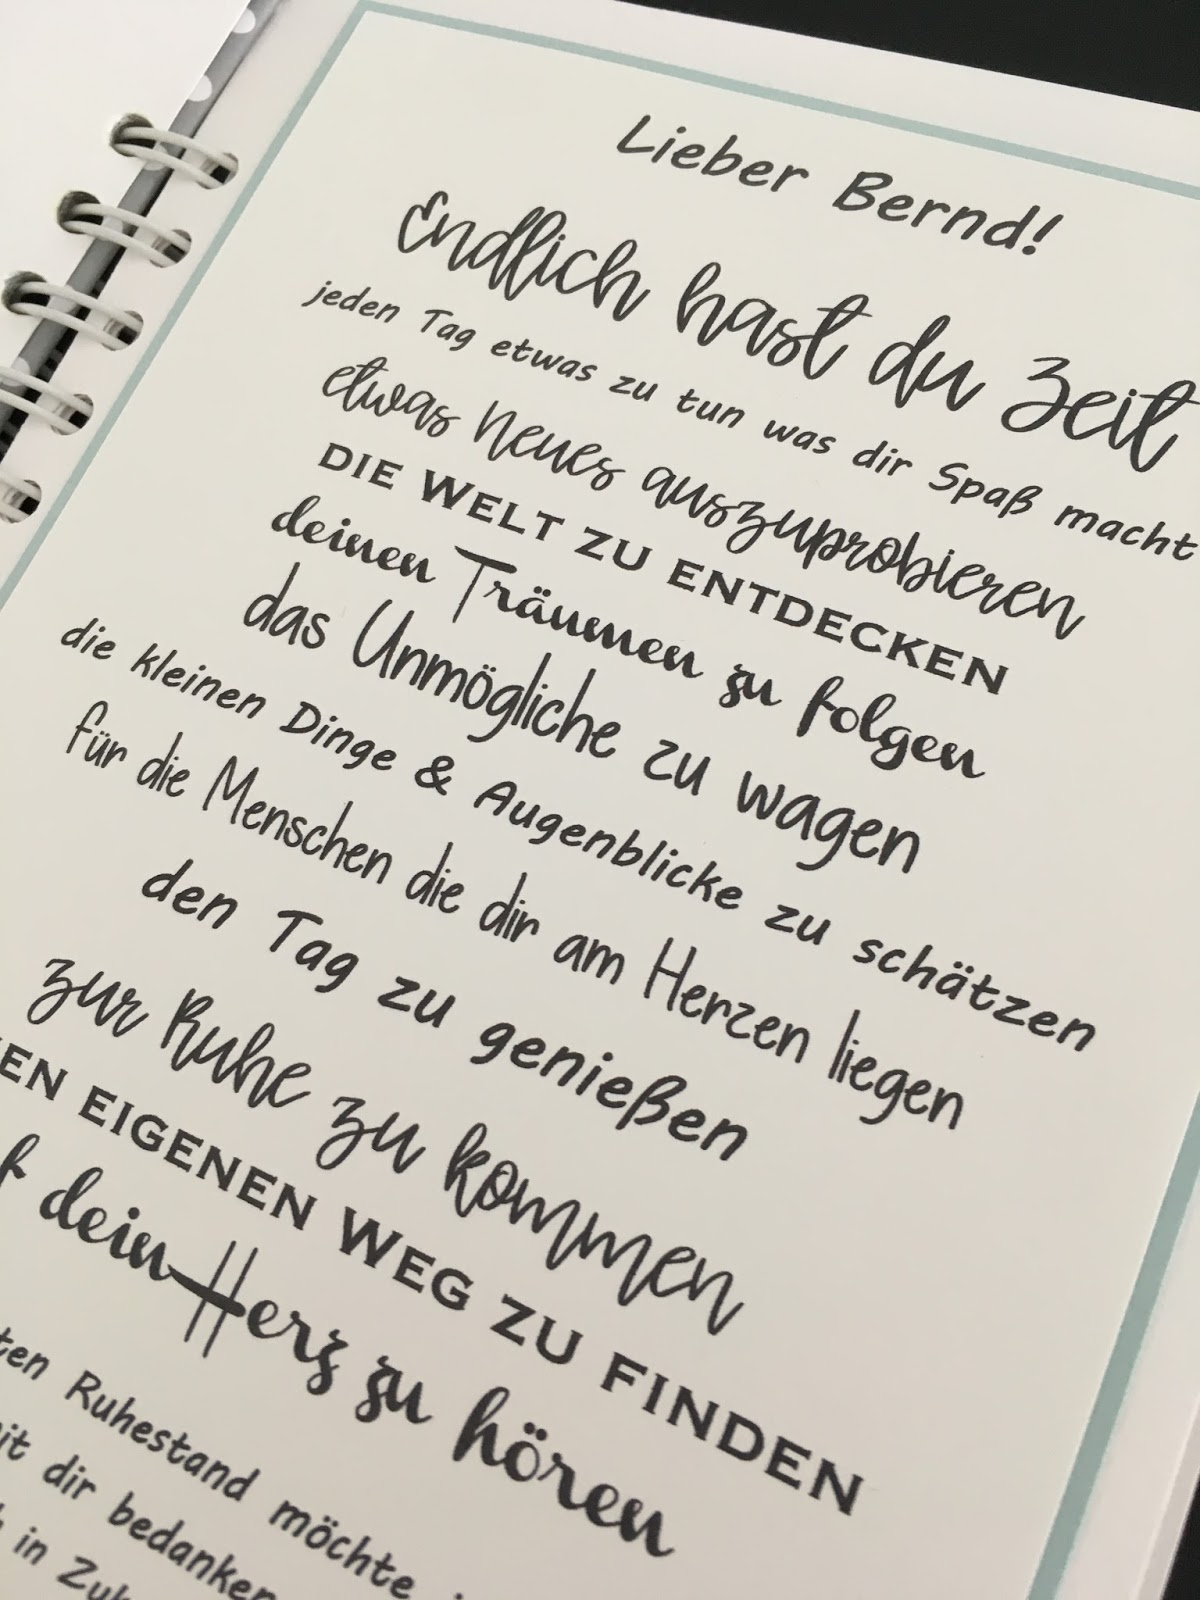 Lieber Bernd!
Endlich hast du Zeit
jeden Tag etwas zu tun was dir Spaß macht
etwas Neues auszuprobieren
DIE WELT ZU ENTDECKEN
deinen Träumen zu folgen
das Unmögliche zu wagen
die kleinen Dinge & Augenblicke zu schätzen
für die Menschen die dir am Herzen liegen
den Tag zu genießen
zur Ruhe zu kommen
EIGENEN WEG ZU FINDEN
dein Herz zu hören
Ruhestand möchte
dir bedanken
in